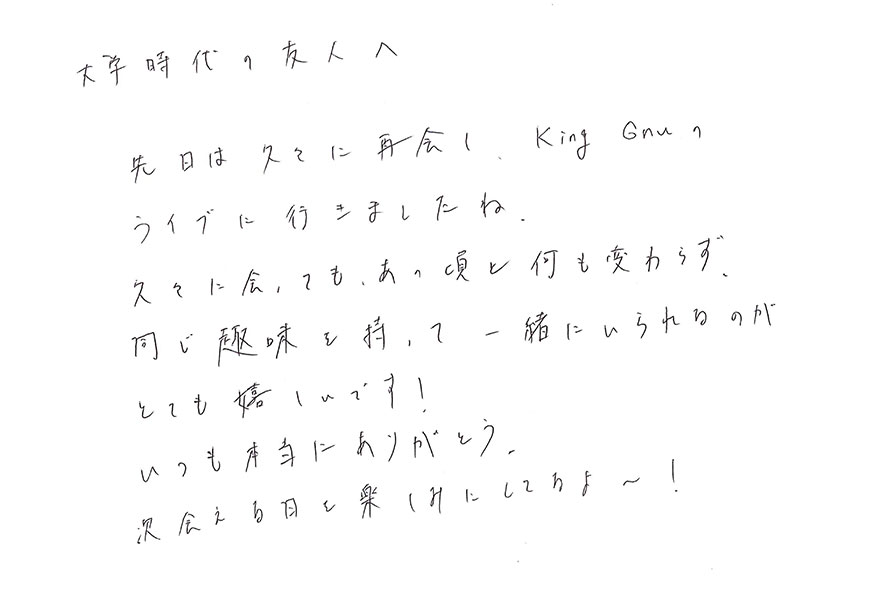 大学時代の友人へ
先日は久々に再会し、King Gnuの
ライブに行きましたね。
久々に会っても、あの頃と何も変わらず、
同じ趣味を持って一緒にいられるのが
とても嬉しいです！
いつも本当にありがとう。
次会える日を楽しみにしてるよ〜！